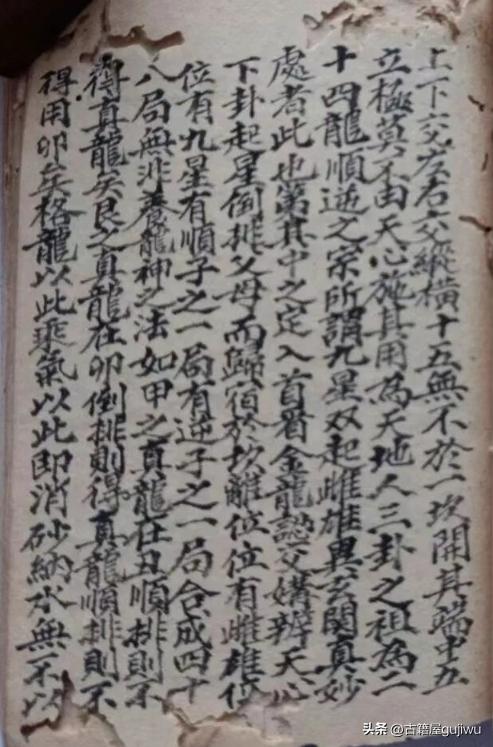 上下交左右交縱橫十五無不於一坎開其端中五
立極莫不由天心施其用為天地人三卦之祖為二
十四龍順逆之宗所謂九星双起雌雄異玄関真妙
處者此也第其中之定入首看金龍認父媾辨天心
下卦起星倒排父母而歸宿於坎離位位有雌雄位
位有九星有順子之一局有逆子之一局合成四十
八局無非養龍神之法如甲之真龍在丑順排則不
得真龍矣艮之真龍在卯倒排則得真龍順排則不
得用卯矣格龍以此乘氣以此即消砂納水無不以
头条 @古籍屋gujiwu